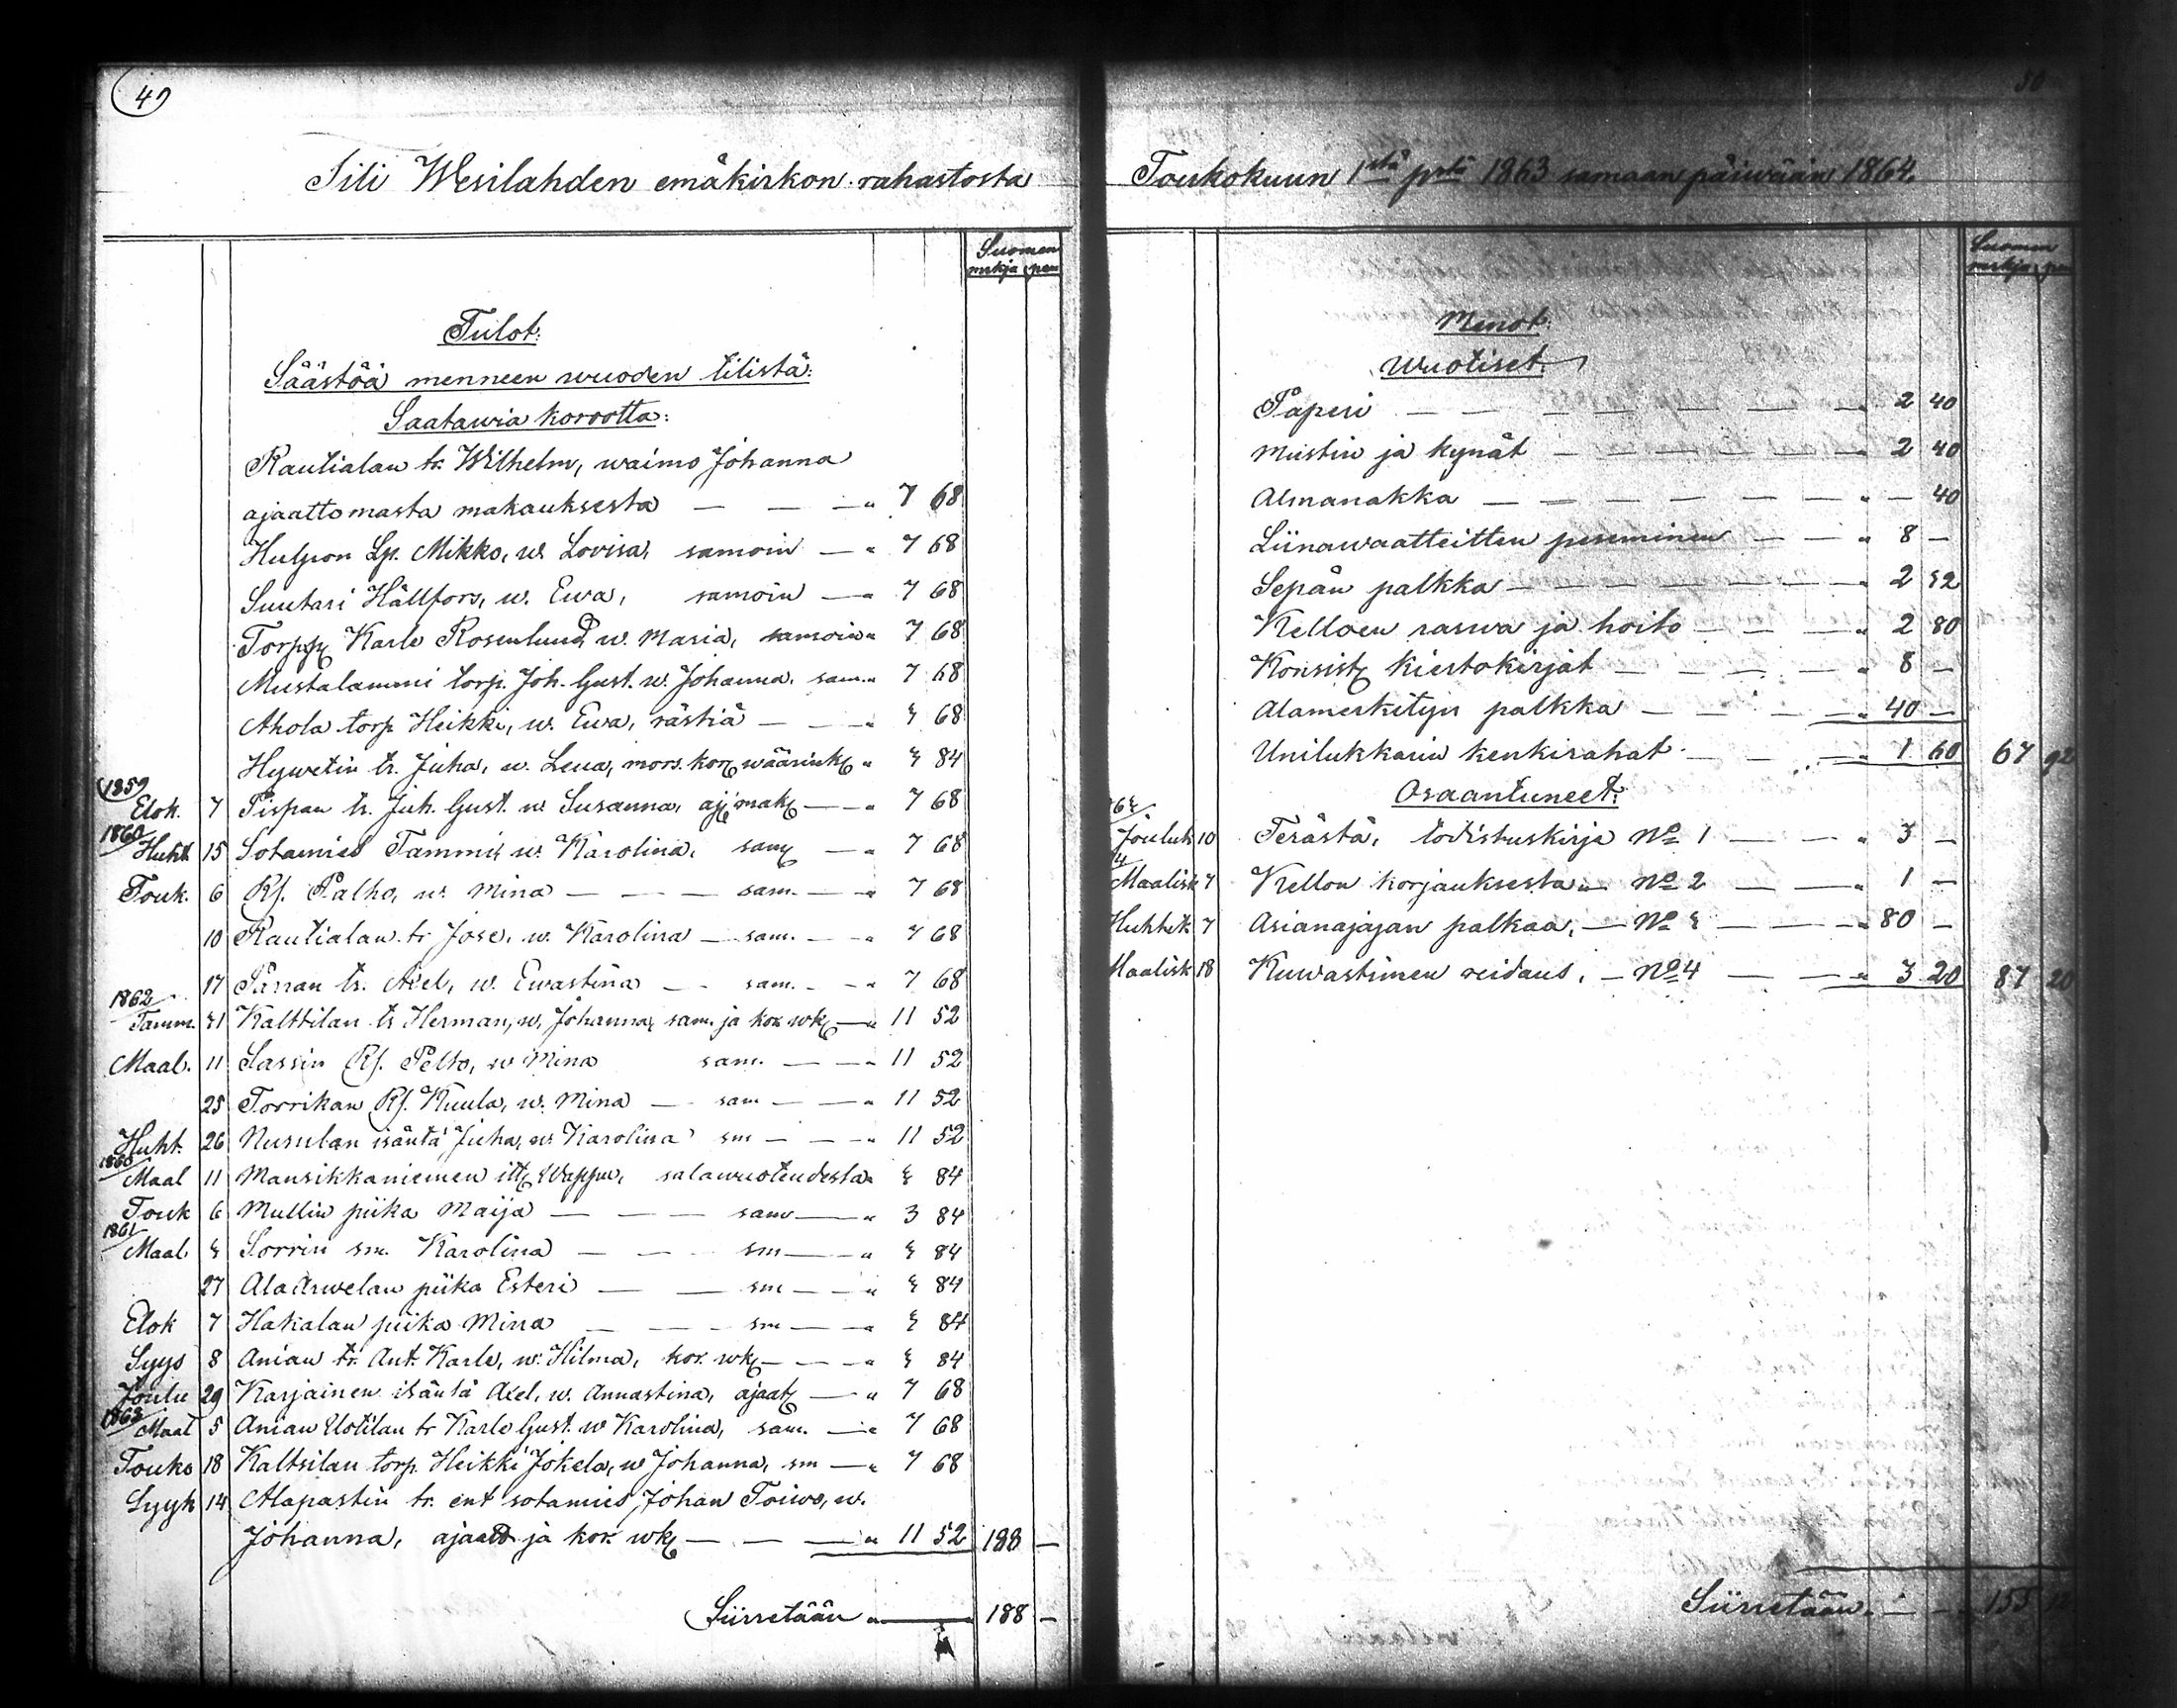 49
Tili Wesilahden emäkirkon rahastosta
Suomen
mrkja pen
Tulot:
Säästöä menneen wuoden tilistä:
Saatawia korootta:
Rautialan tr. Wilhelm, waimo Johanna
ajaattomasta makauksesta — — — " 7 68
Hulpon Lp. Mikko, w. Lovisa, samoin — " 7 68
Suutari Hällfors, w. Ewa, samoin — " 7 68
Torpp Karle Rosenlund w. Maria, samoin " 7 68
Mustalammi torp. Joh. Gust. w. Johanna. sam. " 7 68
Ahola torp Heikki, w. Ewa, rästiä — — " 3 68
Hywetin tr. Juha, w. Leua, mors. kor wäärink " 3 84
1859
Elok. 7 Pispan tr. Juh. Gust. w Susanna, aj mak — " 7 68
1860
Huht 15 Sotamies Tammi, w. Karolina, sam — " 7 68
Touk. 6 Rf. Palho, w. Mina — — — sam. — " 7 68
10 Rautialan tr Jose, w. Karolina — sam. — " 7 68
17 Parran tr. Axel, w. Ewastina — sam. — " 7 68
1862
Tamm. 31 Kalttilan tr Herman, w. Johanna, sam. ja kor wk — " 11 52
Maal. 11 Sassin Rf. Pelto, w Mina sam. — — " 11 52
25 Torrikan Rf. Kuula, w. Mina — sam — — " 11 52
Huht. 26 Nusulan isäntä Juha, w Karolina sm — — " 11 52
1860
Maal 11 Mansikkaniemen itt Wappu, salawuoteudesta " 3 84
Touk 6 Mullin piika Maija — — — sam — " 3 84
1861
Maal. 3 Sorrin sm. Karolina — — sm — " 3 84
27 Ala Arwelan piika Esteri — — sm — " 3 84
Elok 7 Hakalan piika Mina — — sm — " 3 84
Syys 8 Anian tr. Ant. Karle, w. Hilma, kor. wk — — " 3 84
Joulu 29 Karjainen isäntä Axel, w. Annastina, ajaat — " 7 68
1863
Maal 5 Anian Uotilan tr Karle Gust. w Karolina, sam. — " 7 68
Touko 18 Kaltsilan torp. Heikki Jokela, w Johanna, sm — " 7 68
Syyk 14 Alapastin tr. ent sotamies Johan Toiwo, w.
Johanna, ajaatt ja kor. wk — — — " 11 52 188 —
Siirretään " — 188 —
50
Toukokuun 1stä pstä 1863 samaan päiwään 1864.
Suomen
markja pen
Menot:
Wuotiset:
Paperi — — — — — " 2 40
Mustin ja kynät — — — — " 2 40
Almanakka — — — — — " — 40
Liinawaatteitten peseminen — — " 8 —
Sepän palkka — — — — — " 2 32
Kelloen raswa ja hoito — — — " 2 80
Konsist kiertokirjat — — — " 8 —
Alamerkityn palkka — — — " 40 —
Unilukkarin kenkirahat — — " 1 60 67 92
Osaantuneet:
Jouluk 10 Terästä, todistuskirja No 1 — — " 3 —
Maalisk 7 Kellon korjauksesta " No 2 — — " 1 —
Huhtik 7 Asianajajan palkaa, — No 3 — — " 80 —
Maalisk 18 Kuwastimen reidaus, — No 4 — — " 3 20 87 20
Siirretään " — — 155 12